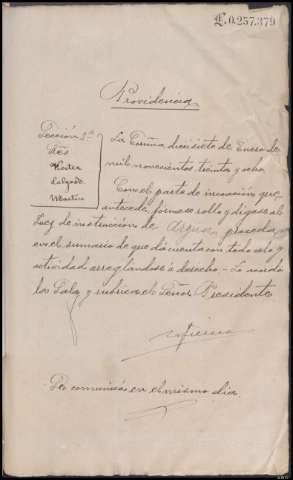 E.0.257.379
Providencia
Sección 2ª
Sres
Salgado
Martín
La Coruña diecisiete de Enero de
mil novecientos treinta y ocho
Con el parte de incoación que
antecede, fórmese rollo y dígase al
Juez de instrucción de Arzúa, proceda
en el sumario de que dá cuenta con todo celo y
actividad arreglandose á derecho - Lo mandó
la Sala y rubrica el Señor Presidente
Se comunicó en el mismo día